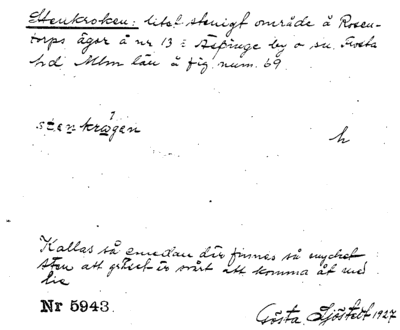 Stenkroken: litet stenigt område å Rosen-
torps ägor å nr 13 = Äspinge by o sn. Frosta
hd Mlm län å fig. num. 69.
stenkrogen
h
Kallas så emedan där finnes så mycket
sten att gräset är svårt att komma åt med
lie
Nr 5943.
Gösta Sjöstedt 1927